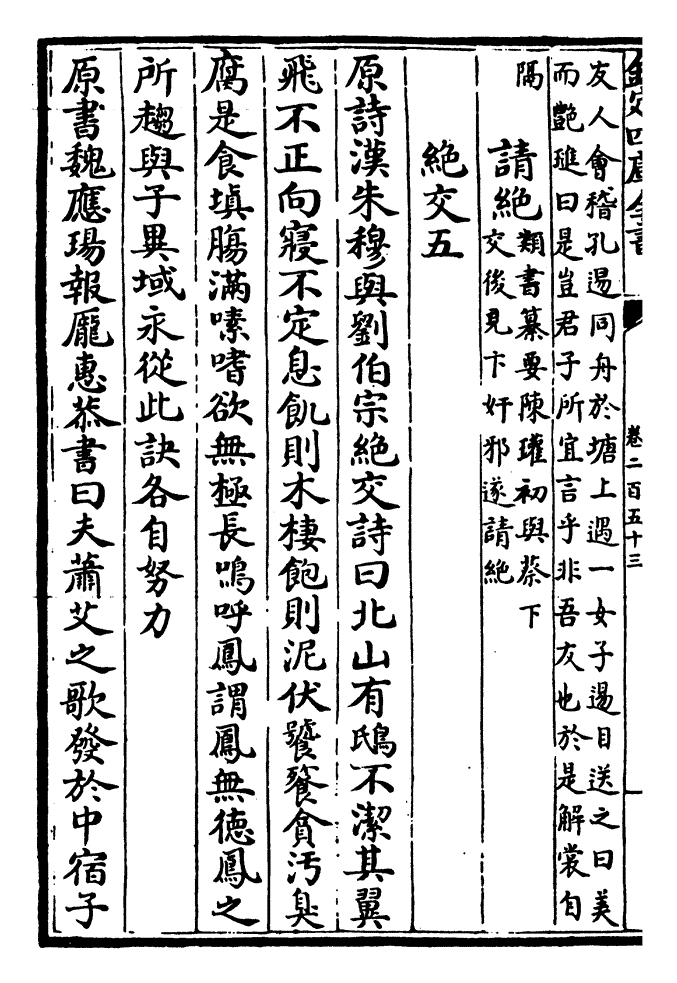 欽定四庫全書
卷二百五十三
友人會稽孔逷同舟於塘上遇一女子逷目送之曰美
而艷璡曰是豈君子所宜言乎非吾友也於是解裳自
隔
請絶
類書纂要陳瓘初與蔡卞
交後見卞奸邪遂請絶
絶交五
原詩漢朱穆與劉伯宗絶交詩曰北山有鴟不潔其翼
飛不正向寢不定息飢則木棲飽則泥伏饕餮貪汚臭
腐是食填腸滿嗉嗜欲無極長鳴呼鳳謂鳳無德鳳之
所趨與子異域永從此訣各自努力
原書魏應瑒報龎惠恭書曰夫蕭艾之歌發於中宿子